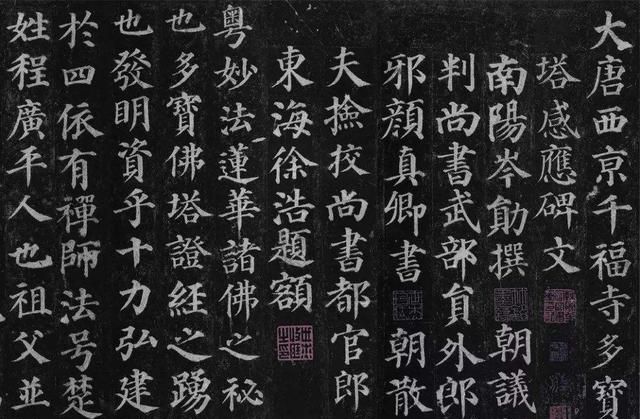 大唐西亰千福寺多寶
塔感應碑文
南陽岑勛撰 朝議
判尚書武部貟外郎
邪顏真卿書 朝散
夫撿挍尚書都官郎
東海徐浩題額
粵妙法蓮華諸佛之秘
也多寶佛塔證経之踴
也發明資乎十力弘建
於四依有禪師法号楚
姓程廣平人也祖父並